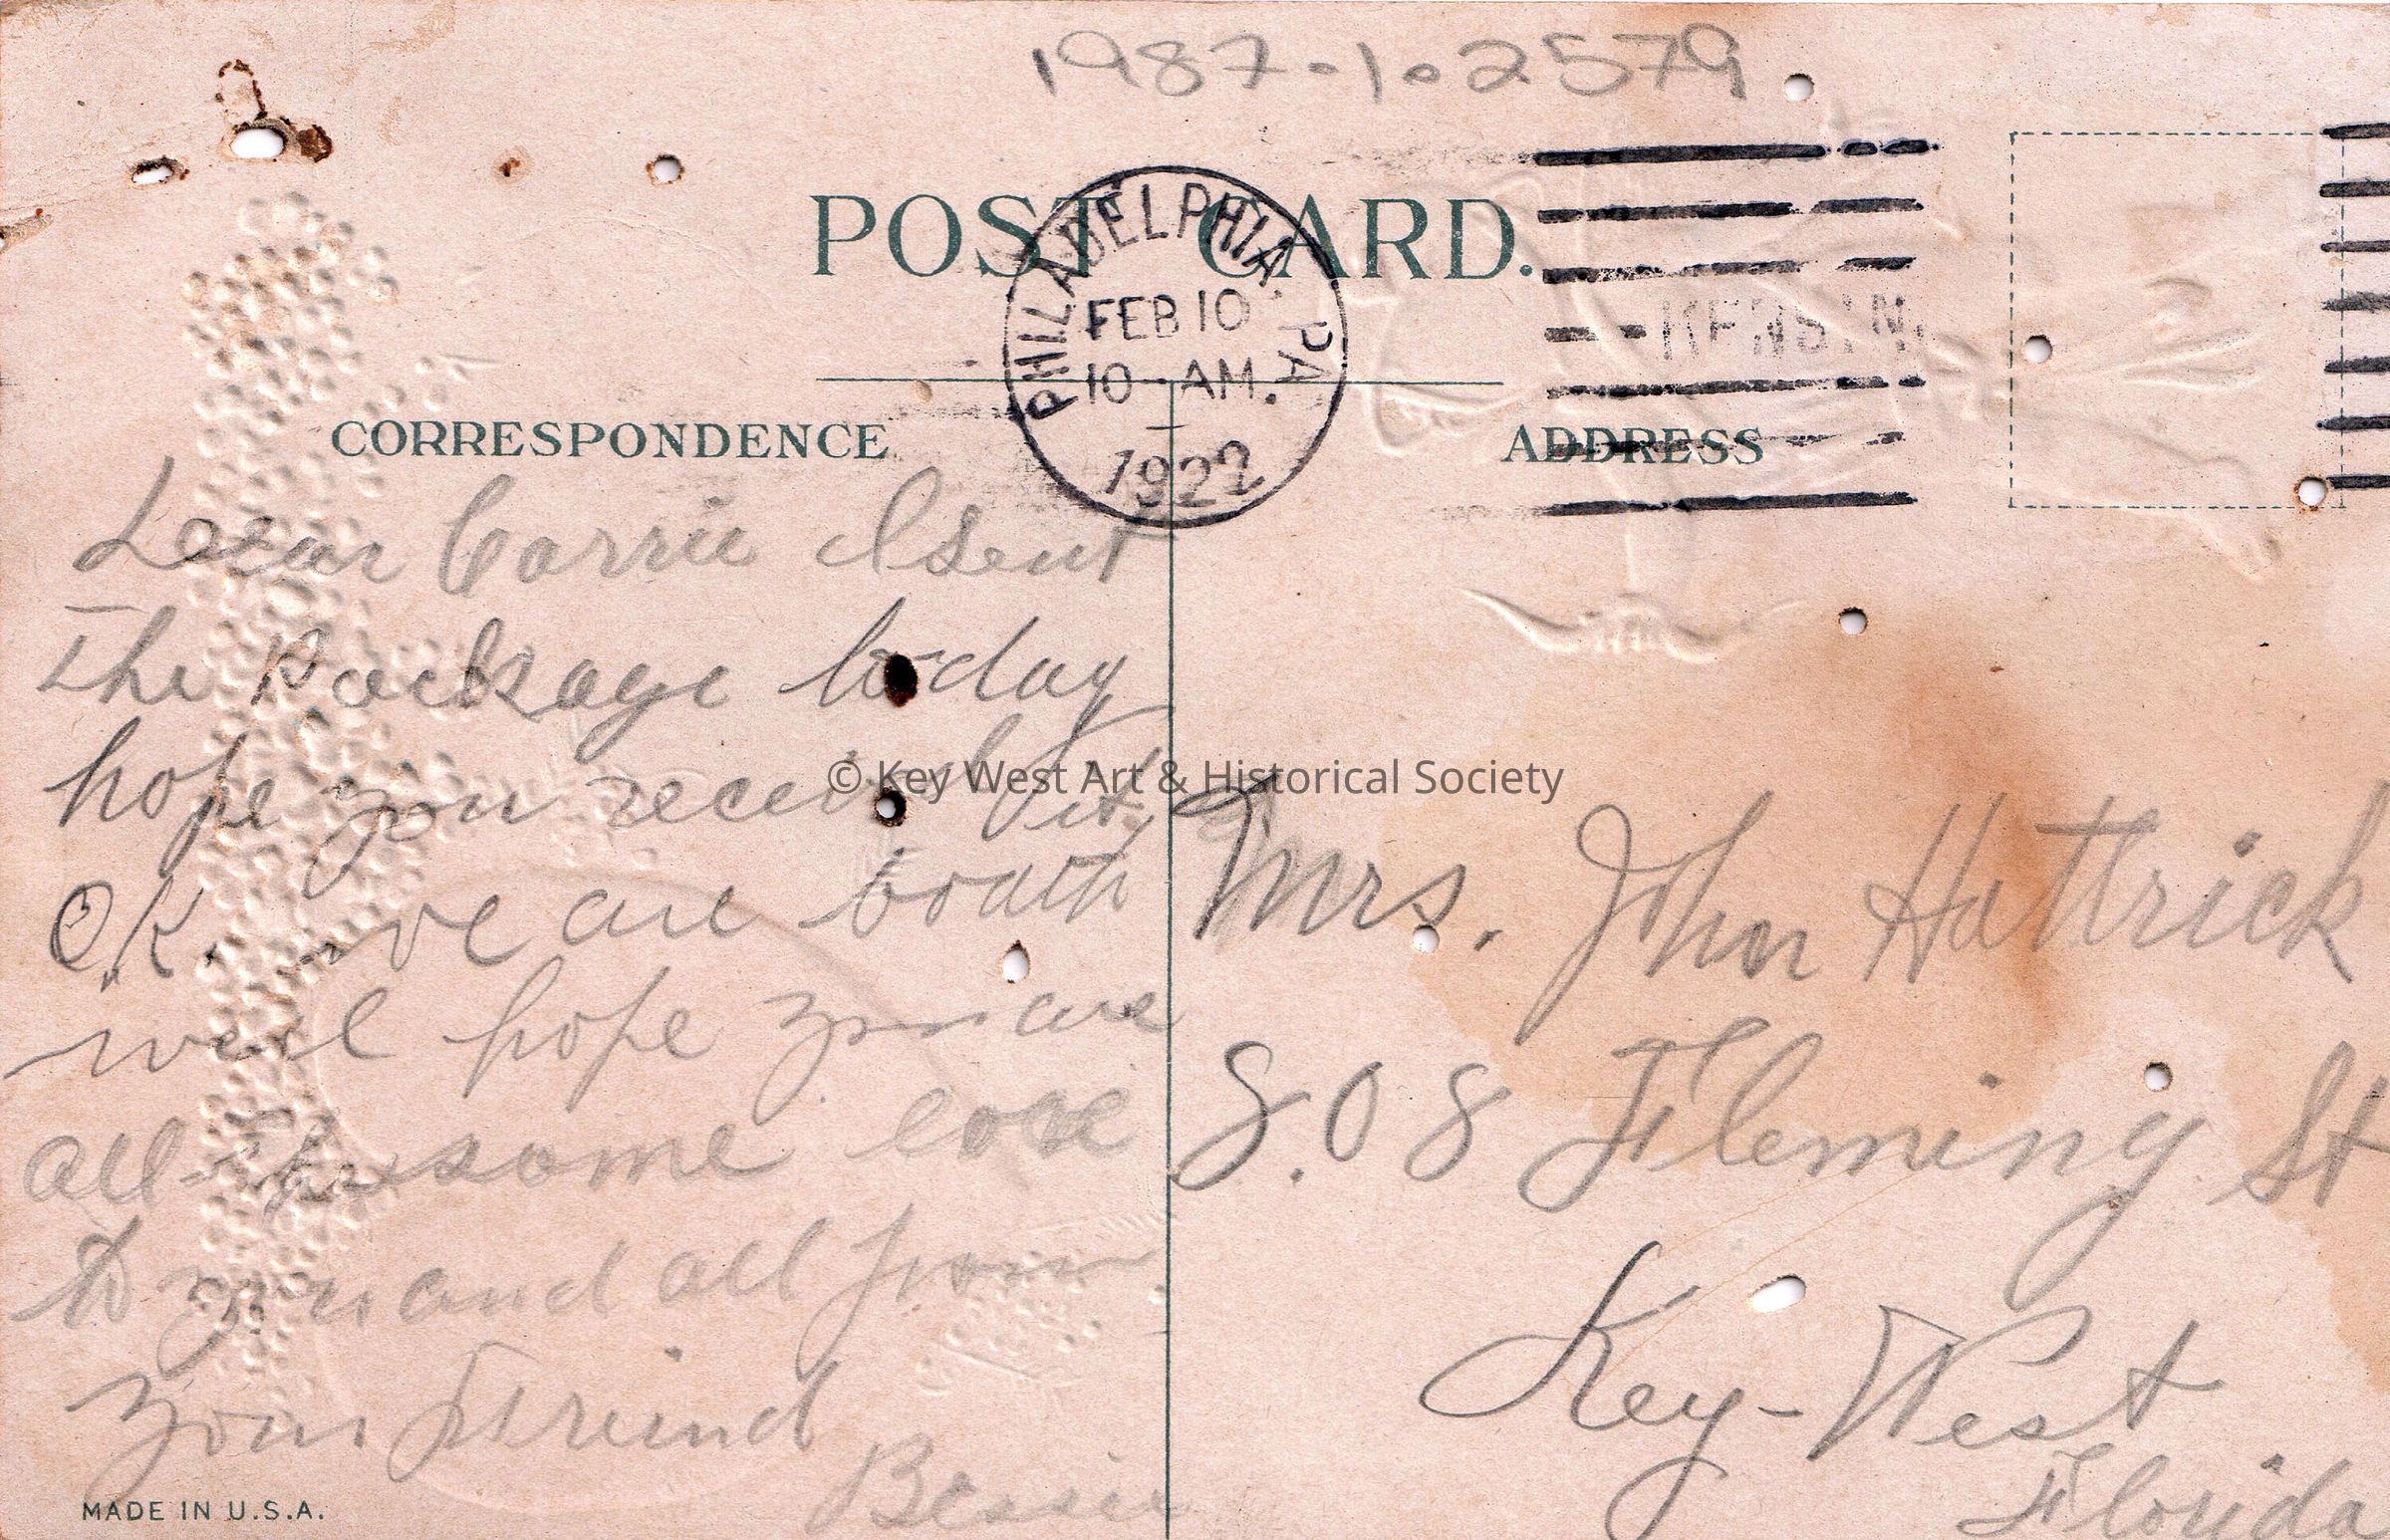 1987.1.2579
POST CARD.
PHILADELPHIA, PA.
FEB 10
10 - AM.
1922
CORRESPONDENCE
ADDRESS
Dear Carrie I sent
the Package to-day
hope you received it
O.K. we are boath
well hope you are
all the some love
to you and all from
your Friend
Bessie
© Key West Art & Historical Society
Mrs. John Hattrick
808 Fleming St
Key-West
Florida
MADE IN U.S.A.